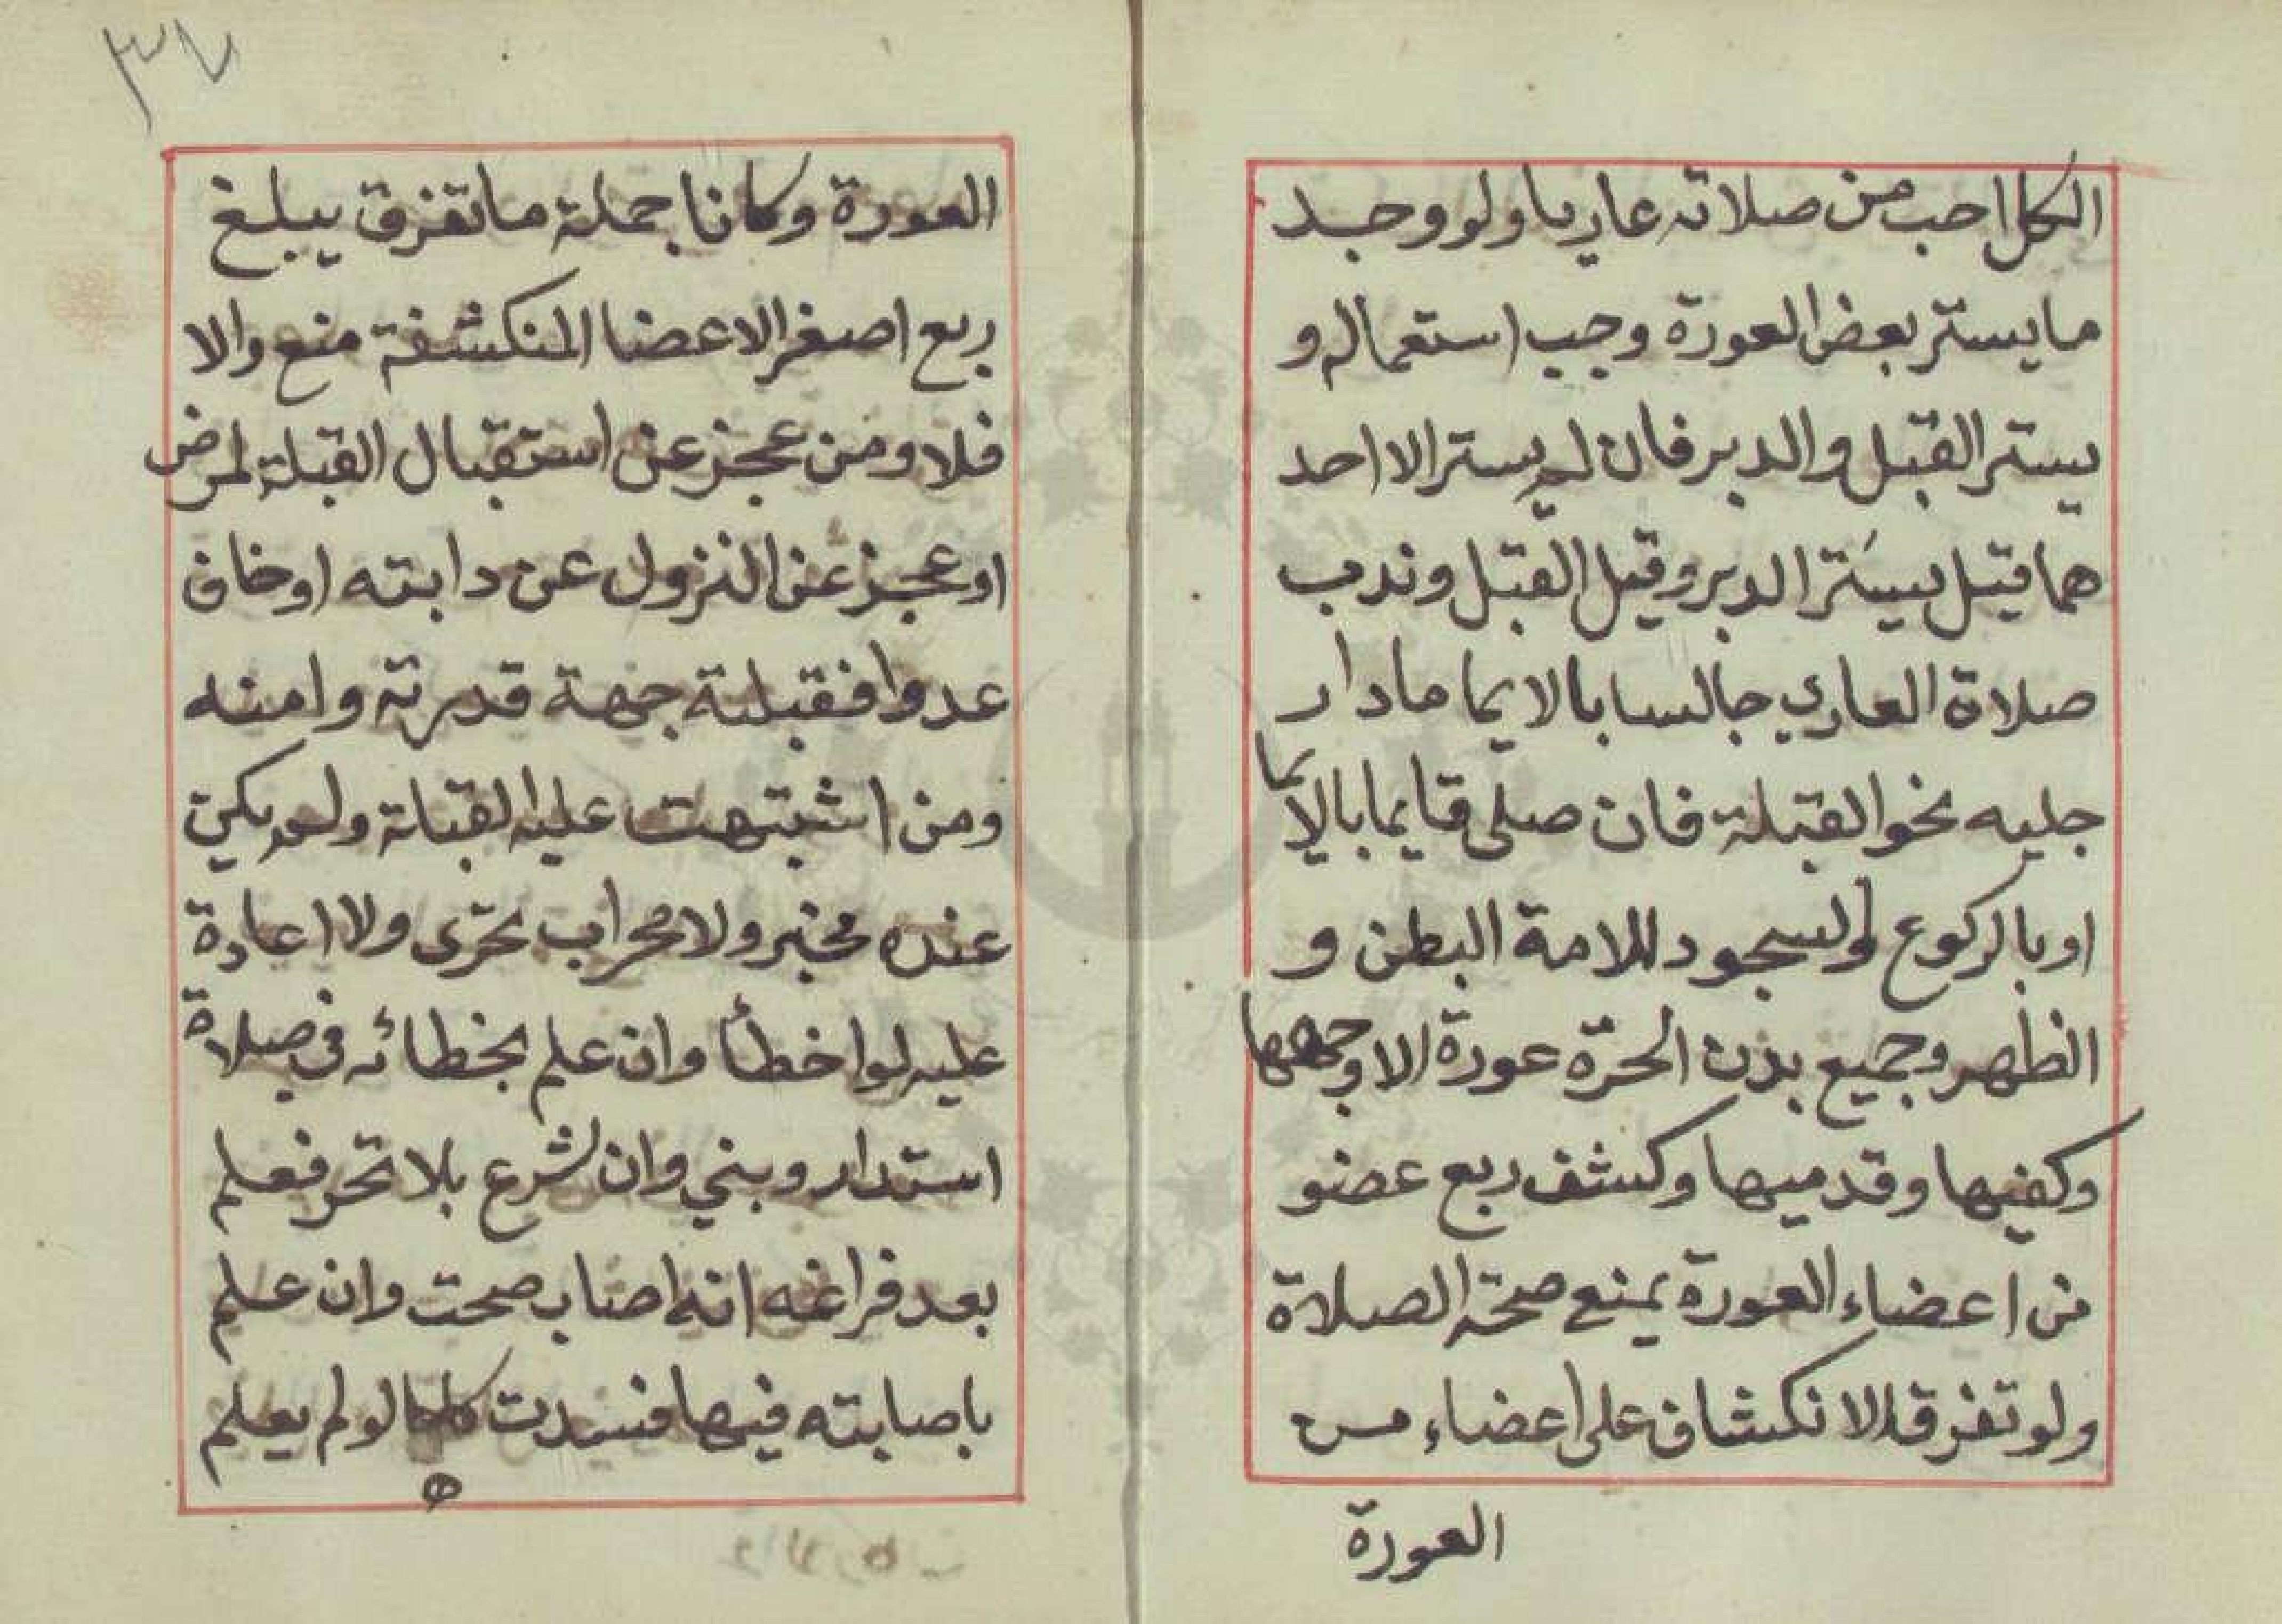 الكل احب من صلاته عاريا ولو وجد
ما يستر بعض العورة وجب استعماله و
يستر القبل والدبر فان لم يستر الا احد
هما قيل يستر الدبر وقيل القبل وندب
صلاة العاري جالسا بالايما مادا ر
جليه نحو القبلة فان صلى قايما بالايما
او بالركوع والسجود للامة البطن و
الظهر وجميع بدن الحرة عورة الا وجهها
وكفيها وقدميها وكشف ربع عضو
من اعضاء العورة يمنع صحة الصلاة
ولو تفرق الانكشاف على اعضاء من
العورة
٣٧
العورة وكانا جملة ما تفرق يبلغ
ربع اصغر الاعضا المنكشفة منع والا
فلا ومن عجز عن استقبال القبلة لمرض
او عجز عن النزول عن دابته او خاف
عدوا فقبلته جهة قدرته وامنه
ومن اشتبهت عليه القبلة ولم يكن
عنده مخبر ولا محراب تحرى ولا اعادة
عليه لو اخطأ وان علم بخطائه في صلاة
استدار وبني وان شرع بلا تحر فعلم
بعد فراغه انه اصاب صحت وان علم
باصابته فيها فسدت كما لو لم يعلم